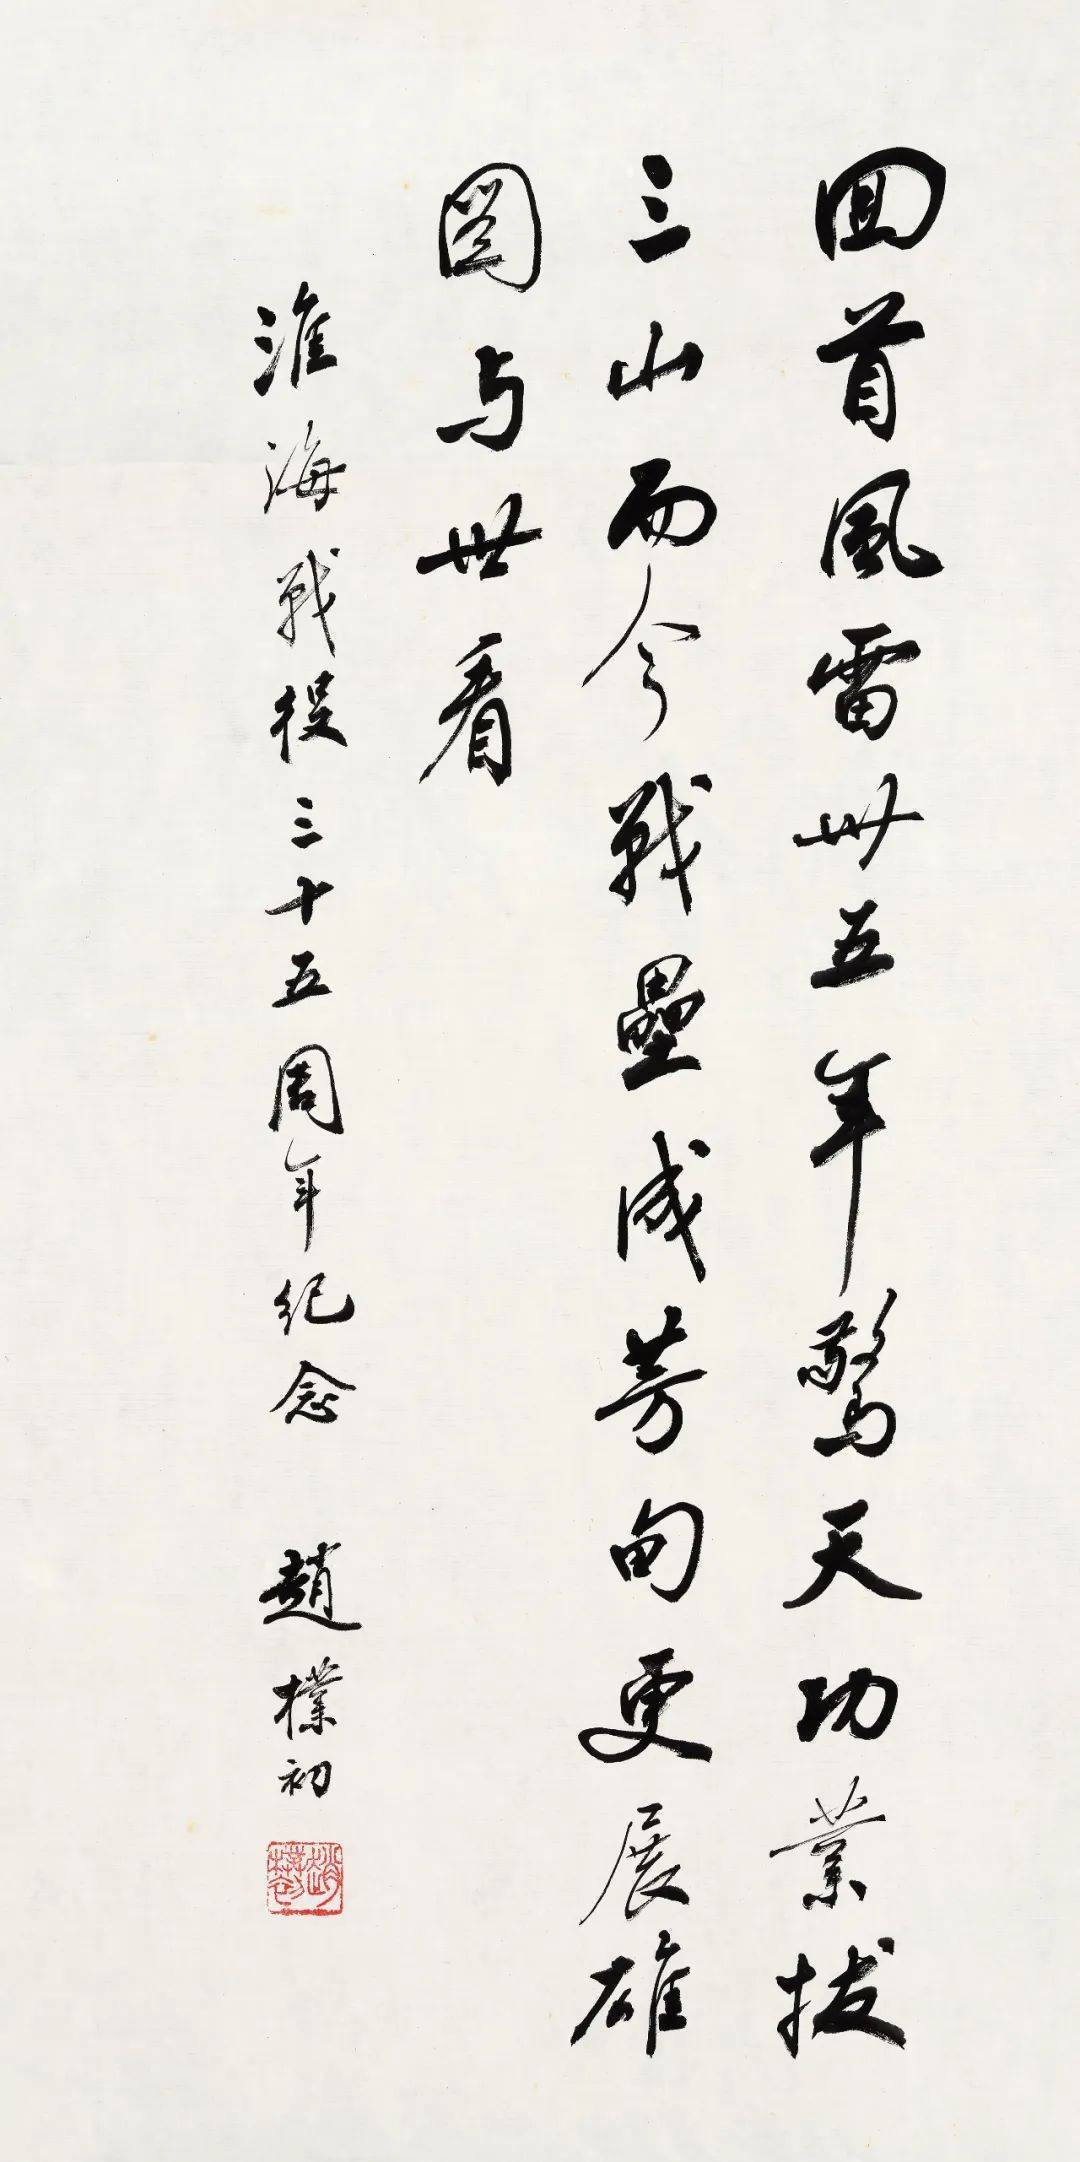 回首風雷卅五年驚天功業拔
三山而今戰壘成芳甸更展雄
圖与世看
淮海戰役三十五周年纪念 趙樸初